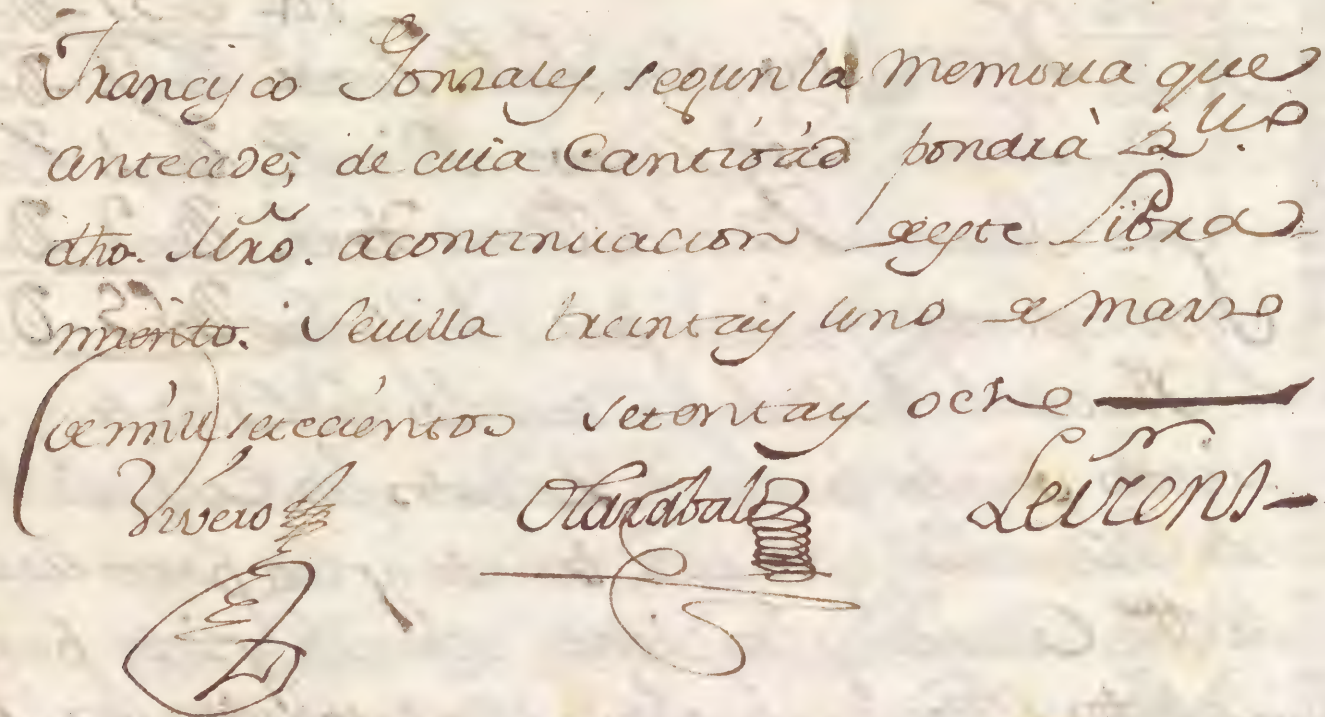 Francisco Gonzales, segun la memoria que
antecede; de cuia Cantidad pondrà R.vo
dho. Mro. acontinuacion deeste Libra
miento. Seuilla treintay uno de marzo
de mill setecientos setentay ocho
Vivero Olazabal Leirens